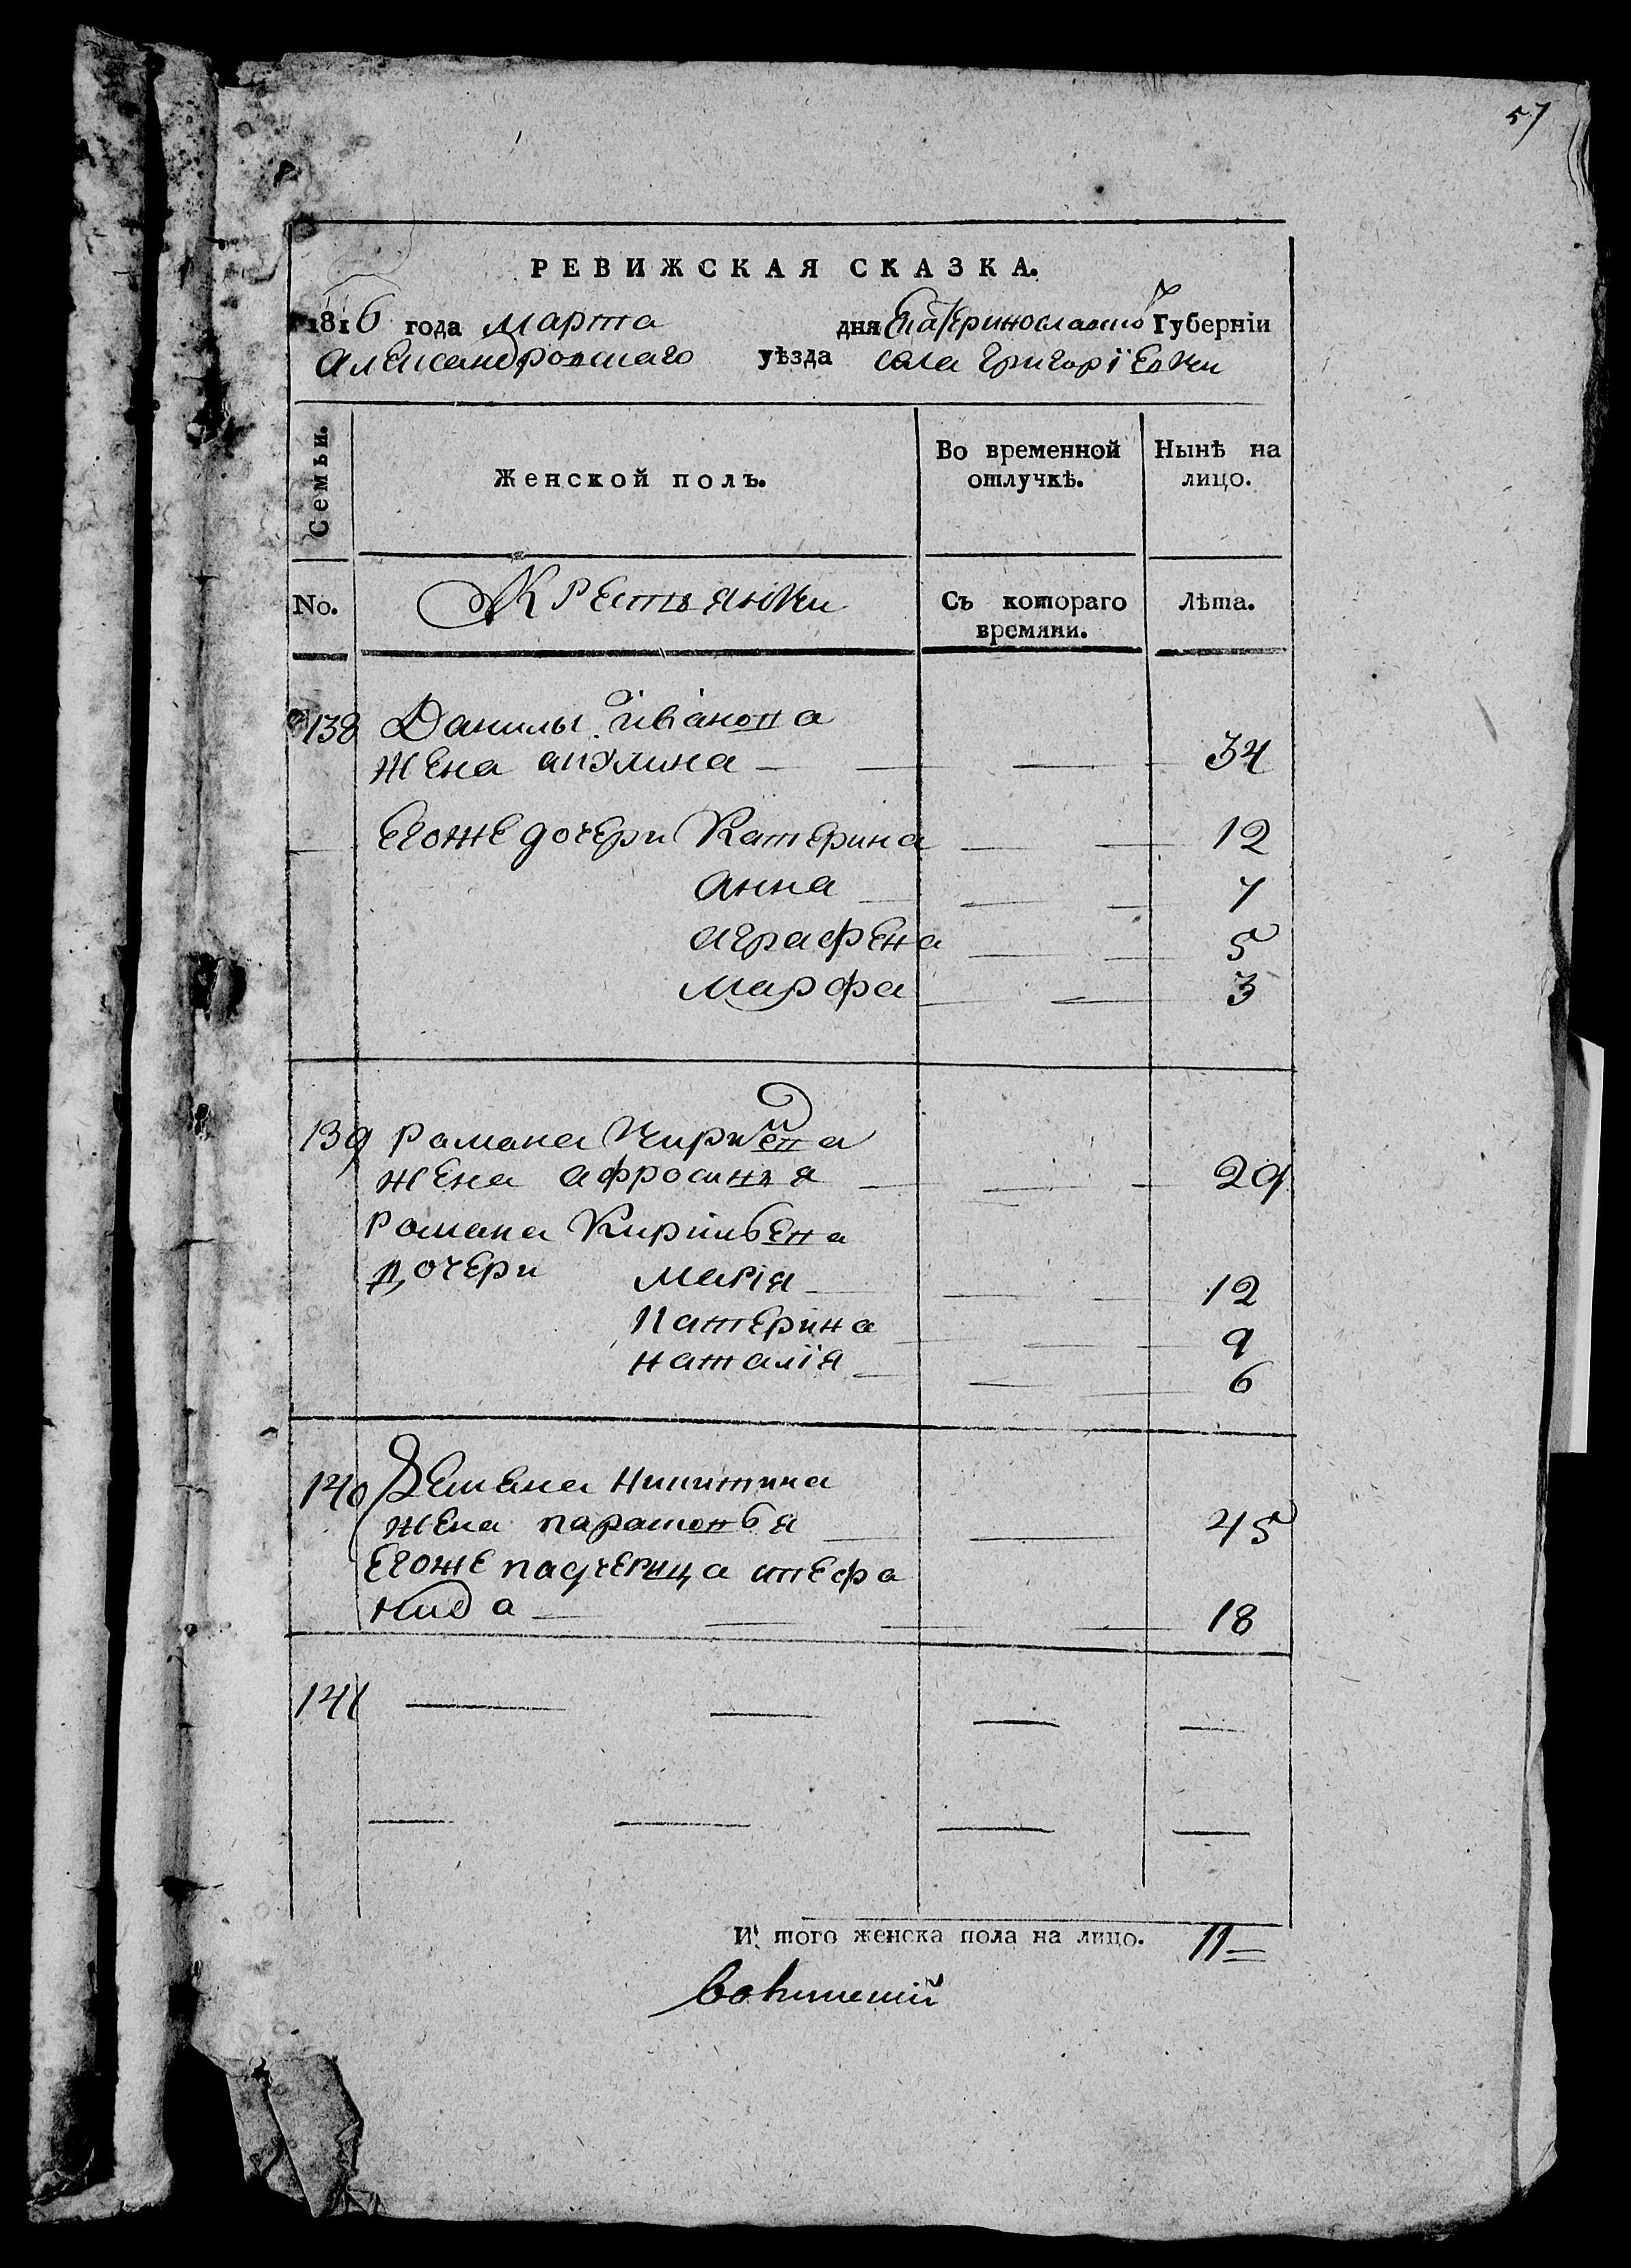 57
РЕВИЖСКАЯ СКАЗКА.
1816 года марта дня Екатеринославско Губерніи
александровскаго уѣзда села григоріевки
Семьи. Женской полъ. Во временной отлучкѣ. Нынѣ на лицо.
No. Крестьянки Съ котораго времяни. Лѣта.
138 Данилы иванова
жена акулина 34
егоже дочери Катерина 12
анна 7
аграфена 5
марфа 3
139 романа
жена афросинья 29
романа
дочери марія 12
катерина 9
наталія 6
140 никитина
жена 45
егоже падчерица стефа
нида 18
141
И того женска пола на лицо. 11